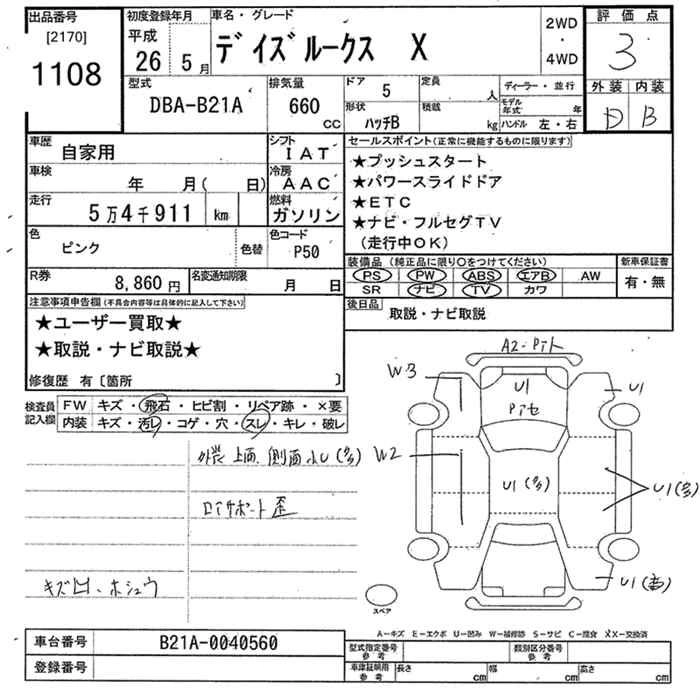 出品番号
[2170]
1108
初度登録年月
平成
26年 5月
車名・グレード
デイズルークス X
2WD
・
4WD
評価点
3
外装 内装
D B
型式
DBA-B21A
排気量
660
CC
ドア
5
定員
人
形状
ハッチB
積載
kg
ディーラー・並行
モデル年式 年
ハンドル 左・右
車歴
自家用
シフト
IAT
車検
年 月( 日)
冷房
AAC
走行
5万4千911 km
燃料
ガソリン
色
ピンク
色替
色コード
P50
R券
8,860円
名変通知期限
月 日
セールスポイント(正常に機能するものに限ります)
★プッシュスタート
★パワースライドドア
★ETC
★ナビ・フルセグTV
(走行中OK)
装備品 (純正品に限り○をつけてください)
PS PW ABS エアB AW
SR ナビ TV カワ
新車保証書
有・無
後日品
取説・ナビ取説
注意事項申告欄(不具合内容等は具体的に記入して下さい)
★ユーザー買取★
★取説・ナビ取説★
修復歴 有〔箇所 〕
検査員記入欄
FW キズ・飛石・ヒビ割・リペア跡・×要
内装 キズ・汚レ・コゲ・穴・スレ・キレ・破レ
外装 上面、側面小U(多)
コアサポート歪
キズ凹、ホシュウ
A2・Pイト
W3
U1
Pイセ
U1
W2
U1(多)
U1(多)
U1(多)
スペア
A−キズ E−エクボ U−凹み W−補修跡 S−サビ C−腐食 XX−交換済
車台番号
B21A-0040560
登録番号
型式指定番号
参考
類別区分番号
参考
車庫証明用
参考
長さ cm
幅 cm
高さ cm